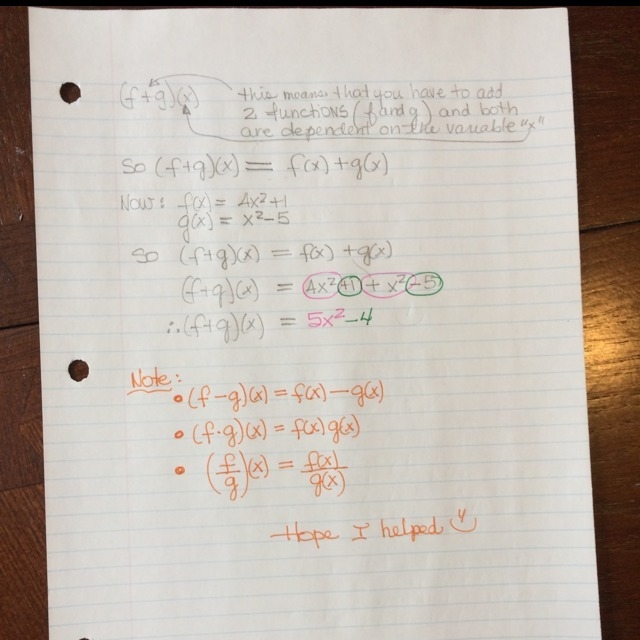 (f+g)(x) this means that you have to add
2 functions (f and g) and both
are dependent on the variable "x"
So (f+g)(x) = f(x)+g(x)
Now: f(x) = 4x²+1
g(x) = x²-5
So (f+g)(x) = f(x) +g(x)
(f+g)(x) = 4x²+1 + x²-5
∴(f+g)(x) = 5x²-4
Note:
• (f-g)(x) = f(x)-g(x)
• (f·g)(x) = f(x) g(x)
• (f/g)(x) = f(x)/g(x)
Hope I helped